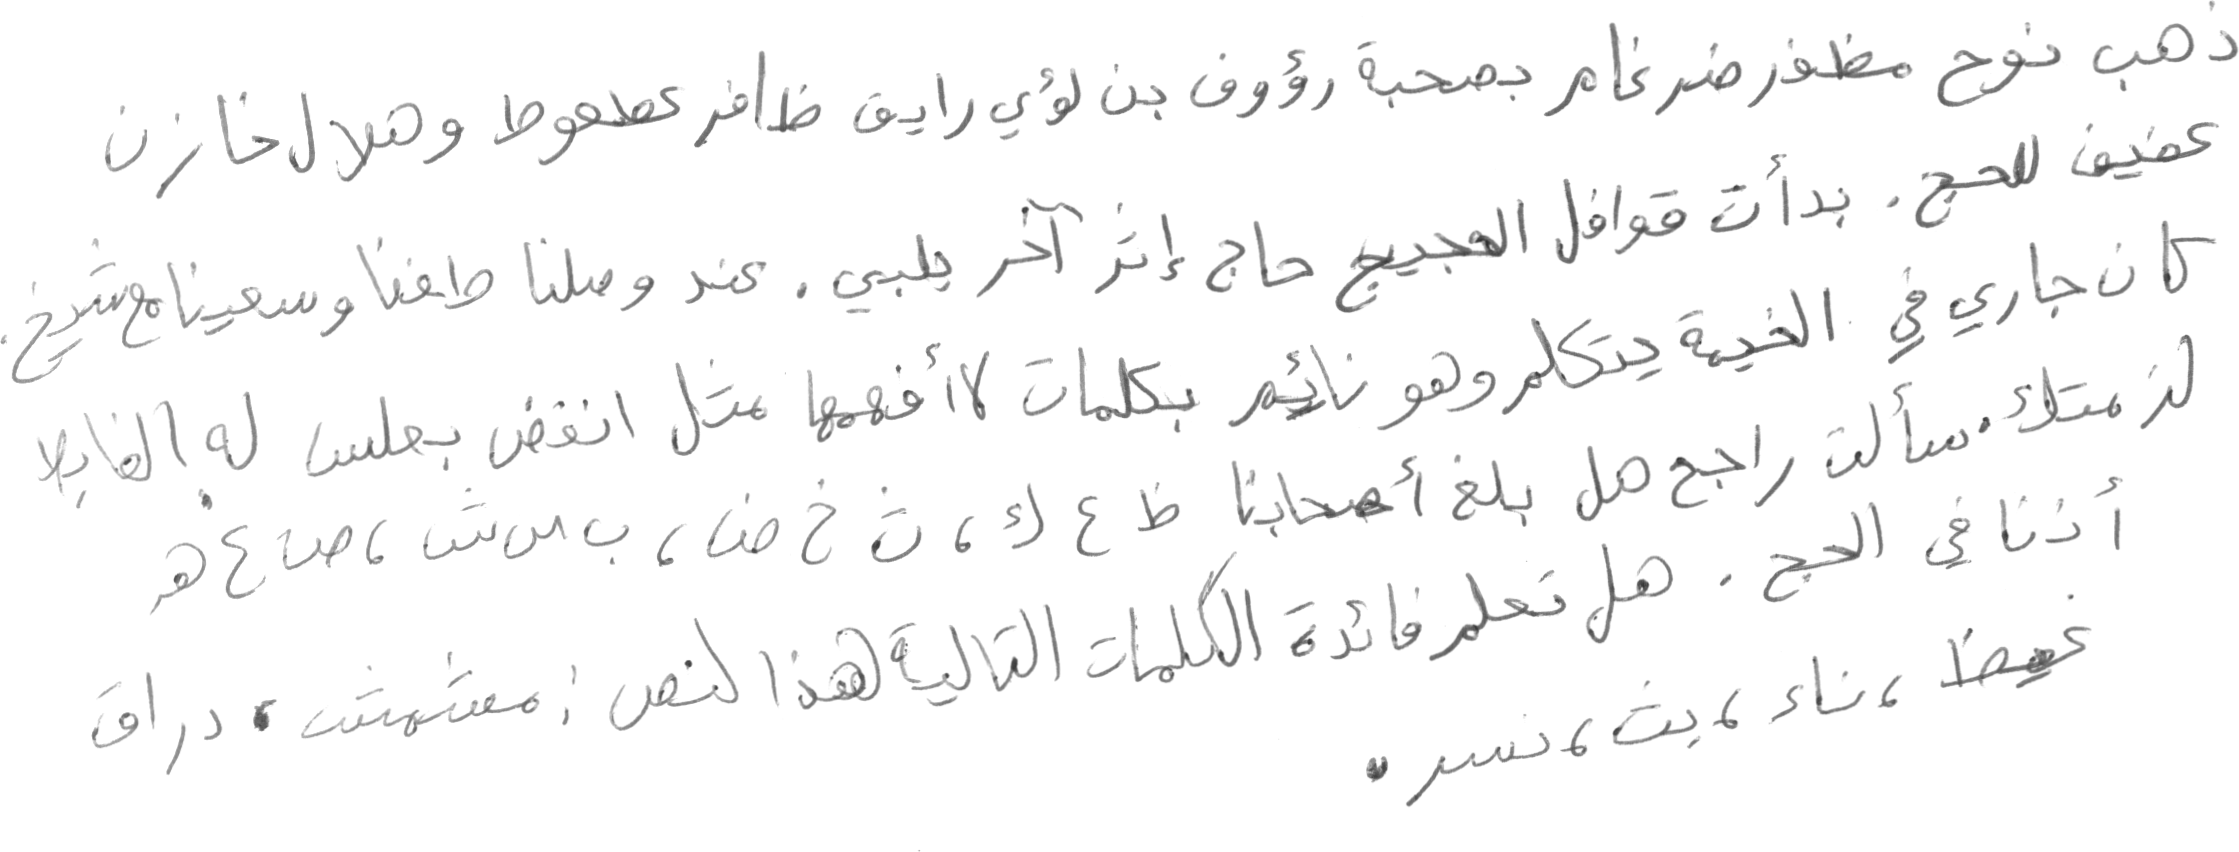 ذهب نوح مظفر ضرغام بصحبة رؤوف بن لؤي رايق ظافر عطعوط وهلال خازن
عفيف للحج. بدأت قوافل الحجيج حاج إثر آخر يلبي. عند وصلنا طفنا وسعينا مع شيخ.
كان جاري في الخيمة يتكلم وهو نائم بكلمات لا أفهمها مثل انقض بعلس له الغابلا
لزمتك. سألت راجح هل بلغ أصحابنا ظ ع ك، ت خ ض، ب س ش، ص ع هـ
أذنا في الحج. هل تعلم فائدة الكلمات التالية لهذا لنص: مشمش، دراق
غيظ، ناء، بث، نسر.